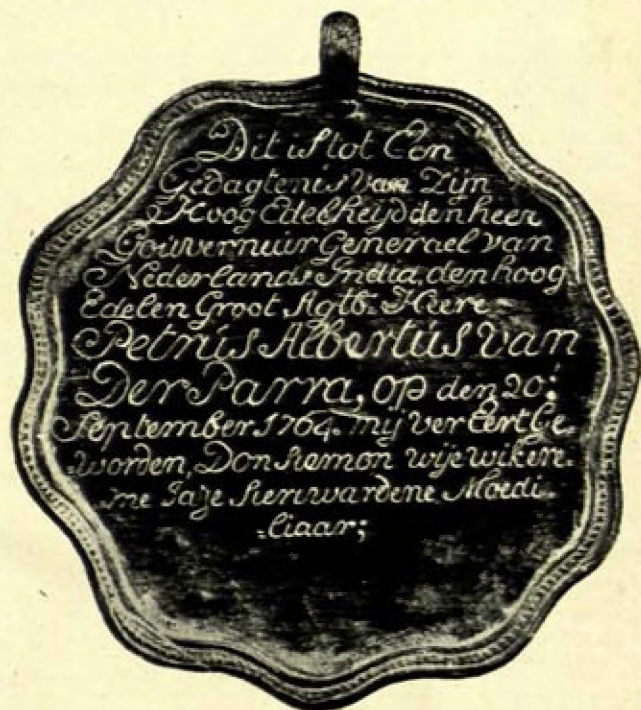 Dit is tot Een
Gedagtenis van Zijn
Hoog Edelheijd den heer
Gouverneur Generael van
Nederlands India, den hoog
Edelen Groot Agtb. Heere
Petrus Albertus van
Der Parra, op den 20:
September 1764. mij ver Eert Ge-
worden, Don Siemon wije wikere-
me Jaije Sieriwardene Moedi-
liaar;